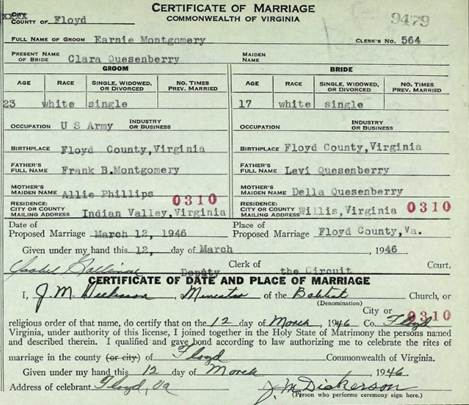 CERTIFICATE OF MARRIAGE
COMMONWEALTH OF VIRGINIA
9479
COUNTY OF Floyd
FULL NAME OF GROOM Earnie Montgomery CLERK'S NO. 564
PRESENT NAME OF BRIDE Clara Quesenberry MAIDEN NAME
GROOM BRIDE
AGE RACE SINGLE, WIDOWED, OR DIVORCED NO. TIMES PREV. MARRIED AGE RACE SINGLE, WIDOWED, OR DIVORCED NO. TIMES PREV. MARRIED
23 white single 17 white single
OCCUPATION U S Army INDUSTRY OR BUSINESS OCCUPATION INDUSTRY OR BUSINESS
BIRTHPLACE Floyd County,Virginia BIRTHPLACE Floyd County,Virginia
FATHER'S FULL NAME Frank B.Montgomery FATHER'S FULL NAME Levi Quesenberry
MOTHER'S MAIDEN NAME Allie Phillips MOTHER'S MAIDEN NAME Della Quesenberry
RESIDENCE: CITY OR COUNTY MAILING ADDRESS Indian Valley,Virginia 0310 RESIDENCE: CITY OR COUNTY MAILING ADDRESS Willis,Virginia 0310
Date of Proposed Marriage March 12, 1946 Place of Proposed Marriage Floyd County,Va.
Given under my hand this 12, day of March 1946
Deputy Clerk of the Circuit Court.
CERTIFICATE OF DATE AND PLACE OF MARRIAGE
I, J. M. Dickerson, a Minister of the Baptist Church, or
(Denomination)
religious order of that name, do certify that on the 12 day of March, 1946 City or Co. Floyd 0310
Virginia, under authority of this license, I joined together in the Holy State of Matrimony the persons named
and described therein. I qualified and gave bond according to law authorizing me to celebrate the rites
of marriage in the county (or city) of Floyd Commonwealth of Virginia.
Given under my hand this 12 day of March 1946
Address of celebrant Floyd, Va J. M. Dickerson
(Person who performs ceremony sign here.)